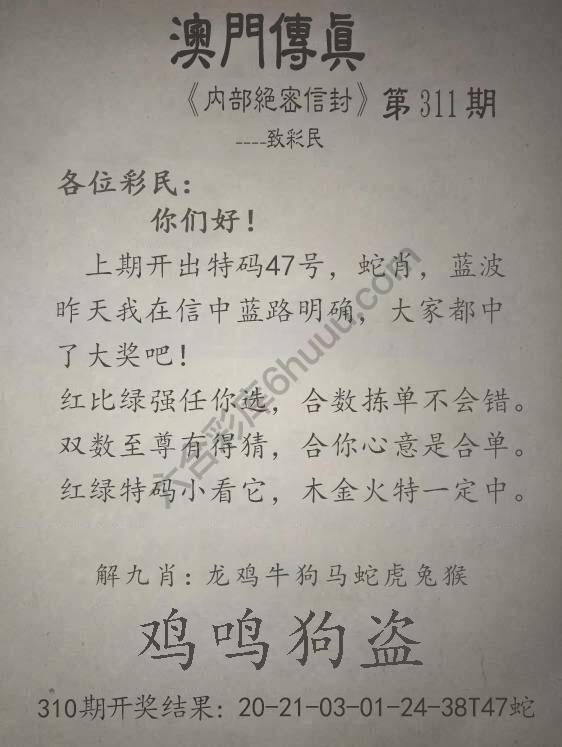 澳門傳眞
《内部絕密信封》第311期
----致彩民
各位彩民：
你们好！
上期开出特码47号，蛇肖，蓝波
昨天我在信中蓝路明确，大家都中
了大奖吧！
红比绿强任你选，合数拣单不会错。
双数至尊有得猜，合你心意是合单。
红绿特码小看它，木金火特一定中。
解九肖：龙鸡牛狗马蛇虎兔猴
鸡鸣狗盗
310期开奖结果：20-21-03-01-24-38T47蛇
六合彩库6huuu.com